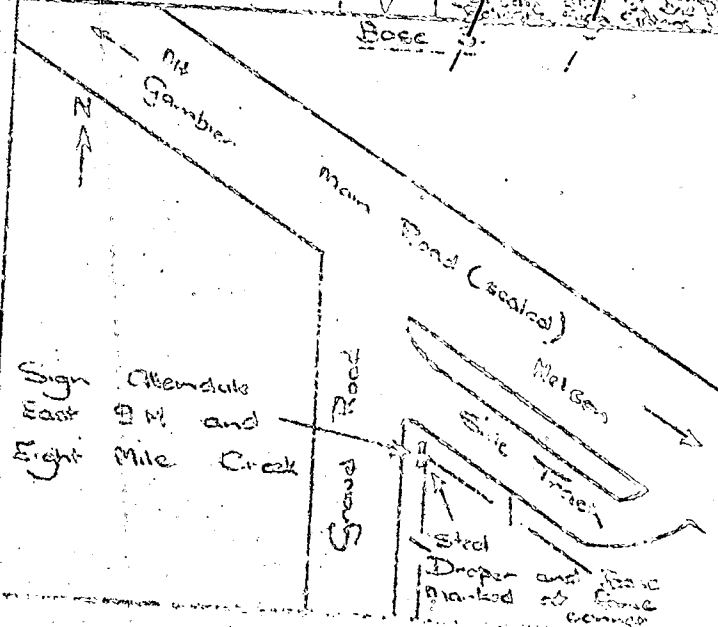 Base
Mt
Gambier
N
Main Road (sealed)
Nelson
Side Track
Sign Allendale
East 9 M and
Eight Mile Creek
Gravel Road
Steel
Dropper and
Marked at fence
corner